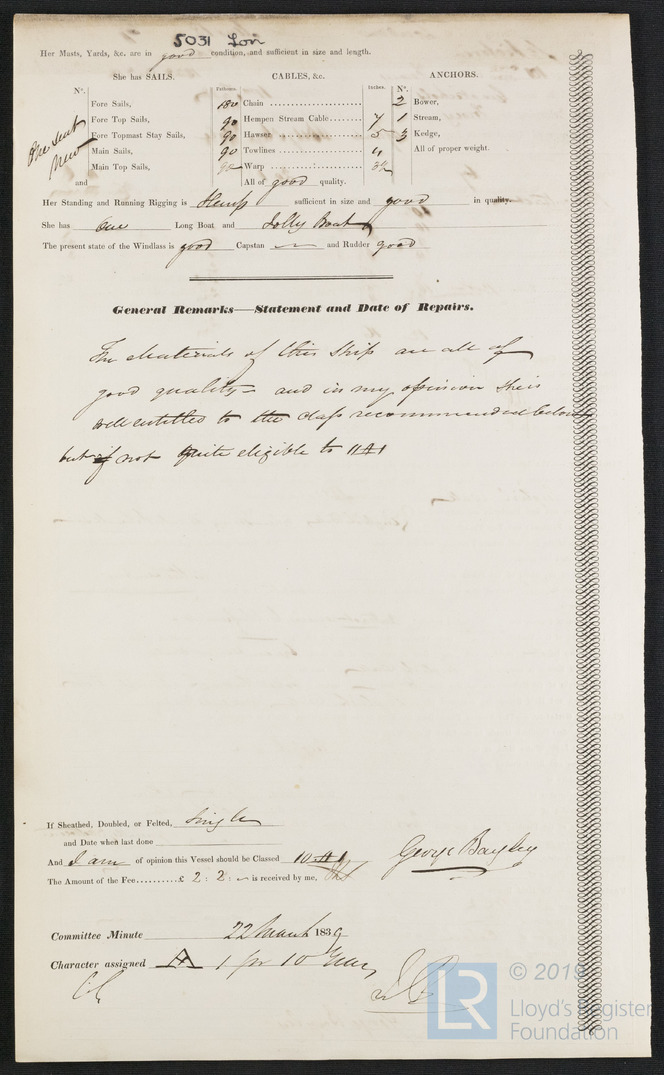 5031 Lon
Her Masts, Yards, &c. are in good condition, and sufficient in size and length.
She has SAILS. CABLES, &c. ANCHORS.
N°. Fathoms. Inches. N°.
Fore Sails, Chain 2 Bower,
Fore Top Sails, 90 Hempen Stream Cable 7 1 Stream,
One Suit Fore Topmast Stay Sails, 90 Hawser 5 3 Kedge,
New Main Sails, 90 Towlines 4 All of proper weight.
Main Top Sails, Warp
and All of good quality.
Her Standing and Running Rigging is Hemp sufficient in size and good in quality.
She has One Long Boat and Jolly Boat
The present state of the Windlass is good Capstan and Rudder good
General Remarks—Statement and Date of Repairs.
The Materials of this Ship are all of
good quality = and in my opinion She is
well entitled to the class recommended below
but not quite eligible to
If Sheathed, Doubled, or Felted, Single
and Date when last done
And I am of opinion this Vessel should be Classed 10 A 1
George Bayley
The Amount of the Fee..........£ 2 : 2 : - is received by me,
Committee Minute 22 March 1839
Character assigned A 1 for 10 Years
LR
© 2019
Lloyd's Register
Foundation